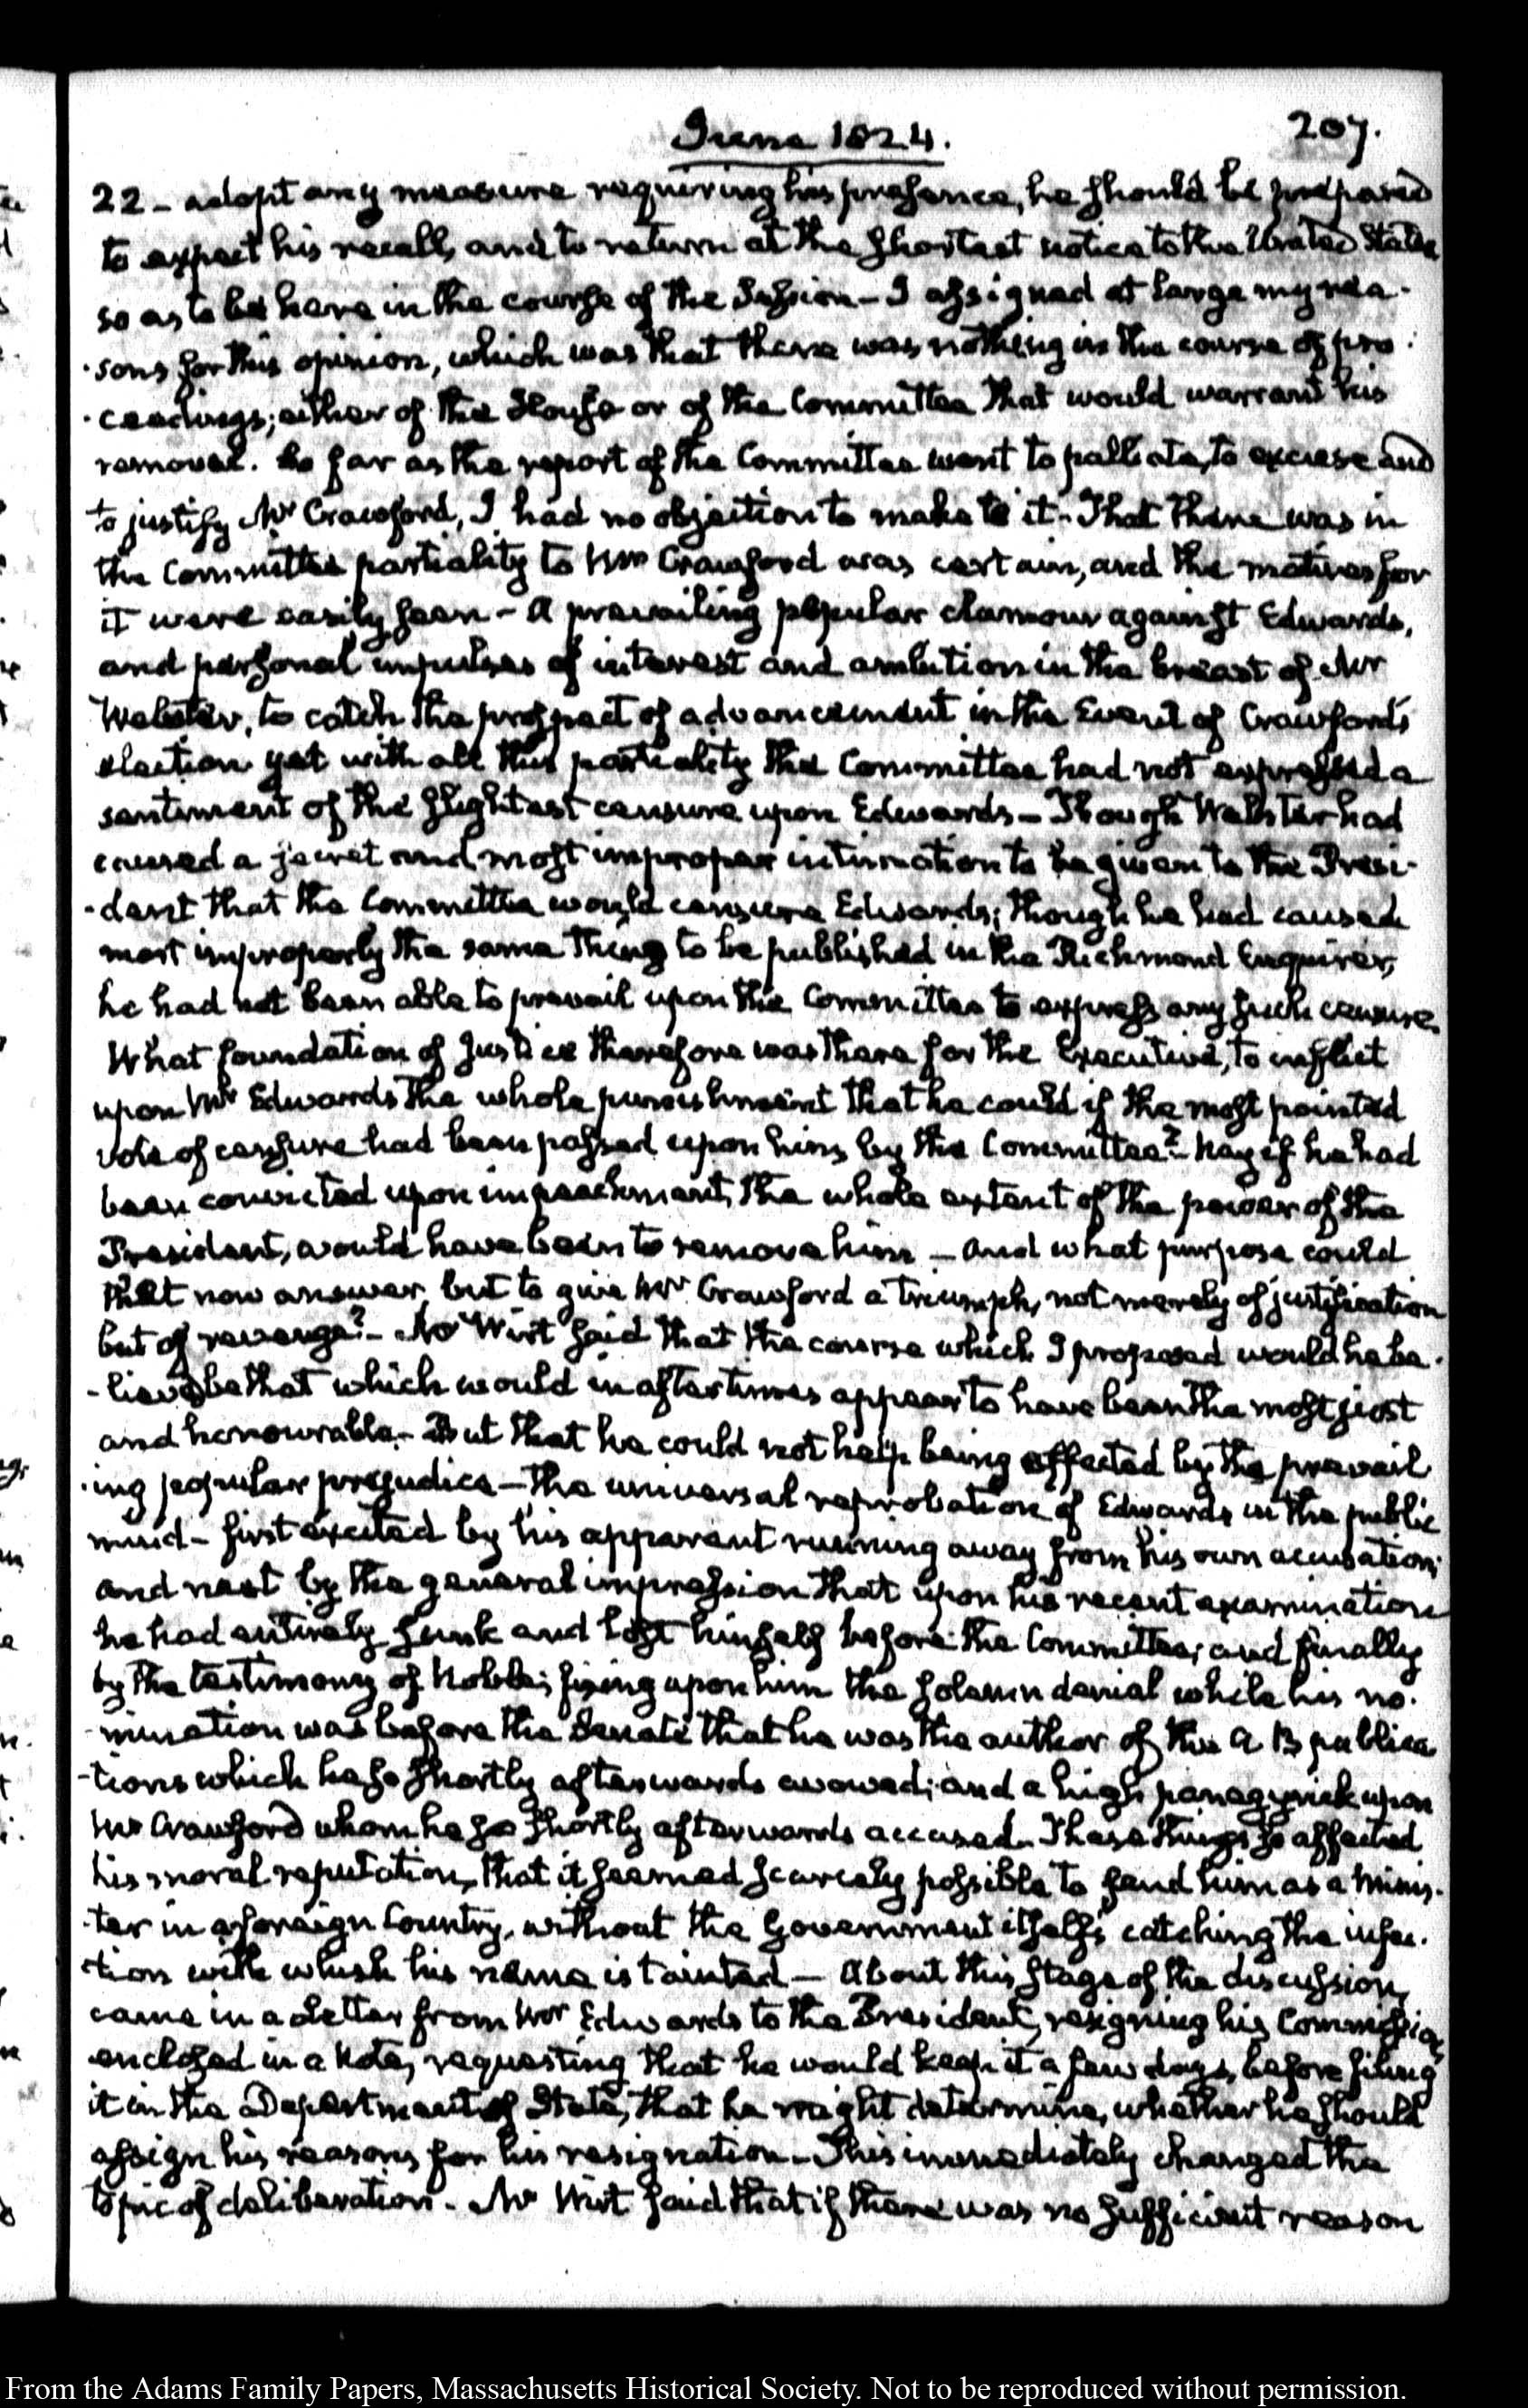 June 1824.
207.
22 - adopt any measure requiring his presence, he should be prepared
to expect his recall, and to return at the shortest notice to the United States
so as to be here in the course of the Session - I assigned at large my rea-
-sons for this opinion, which was that there was nothing in the course of pro-
-ceedings; either of the House or of the Committee that would warrant his
removal. So far as the report of the Committee went to palliate, to excuse and
to justify Mr Crawford, I had no objection to make to it - That there was in
the Committee partiality to Mr Crawford was certain, and the motives for
it were easily seen - A prevailing popular clamour against Edwards,
and personal impulses of interest and ambition in the breast of Mr
Webster, to catch the prospect of advancement in the Event of Crawford's
election yet with all this partiality the Committee had not expressed a
sentiment of the slightest censure upon Edwards - Though Webster had
caused a secret and most improper intimation to be given to the Presi-
-dent that the Committee would censure Edwards; though he had caused
most improperly the same thing to be published in the Richmond Enquirer,
he had not been able to prevail upon the Committee to express any such censure.
What foundation of Justice therefore was there for the Executive, to inflict
upon Mr Edwards the whole punishment that he could if the most pointed
vote of censure had been passed upon him by the Committee? - Nay if he had
been convicted upon impeachment, the whole extent of the power of the
President, would have been to remove him - And what purpose could
that now answer, but to give Mr Crawford a triumph, not merely of justification
but of revenge? - Mr Wirt said that the course which I proposed would he be-
-lieved be that which would in after times appear to have been the most just
and honourable - But that he could not help being affected by the prevail-
-ing popular prejudice - the universal reprobation of Edwards in the public
mind - first excited by his apparent running away from his own accusation;
and next by the general impression that upon his recent examination
he had entirely sunk and lost himself before the Committee; and finally
by the testimony of Noble; fixing upon him the solemn denial while his no-
-mination was before the Senate that he was the author of the A B publica-
-tions which he so shortly afterwards avowed; and a high panegyrick upon
Mr Crawford whom he so shortly afterwards accused. These things so affected
his moral reputation, that it seemed scarcely possible to send him as a Minis-
-ter in a foreign Country, without the Government itself's catching the infec-
-tion with which his name is tainted - About this stage of the discussion,
came in a Letter from Mr Edwards to the President, resigning his Commission
enclosed in a Note, requesting that he would keep it a few days, before filing
it in the Department of State, that he might determine, whether he should
assign his reasons for his resignation - This immediately changed the
topic of deliberation - Mr Wirt said that if there was no sufficient reason
From the Adams Family Papers, Massachusetts Historical Society. Not to be reproduced without permission.